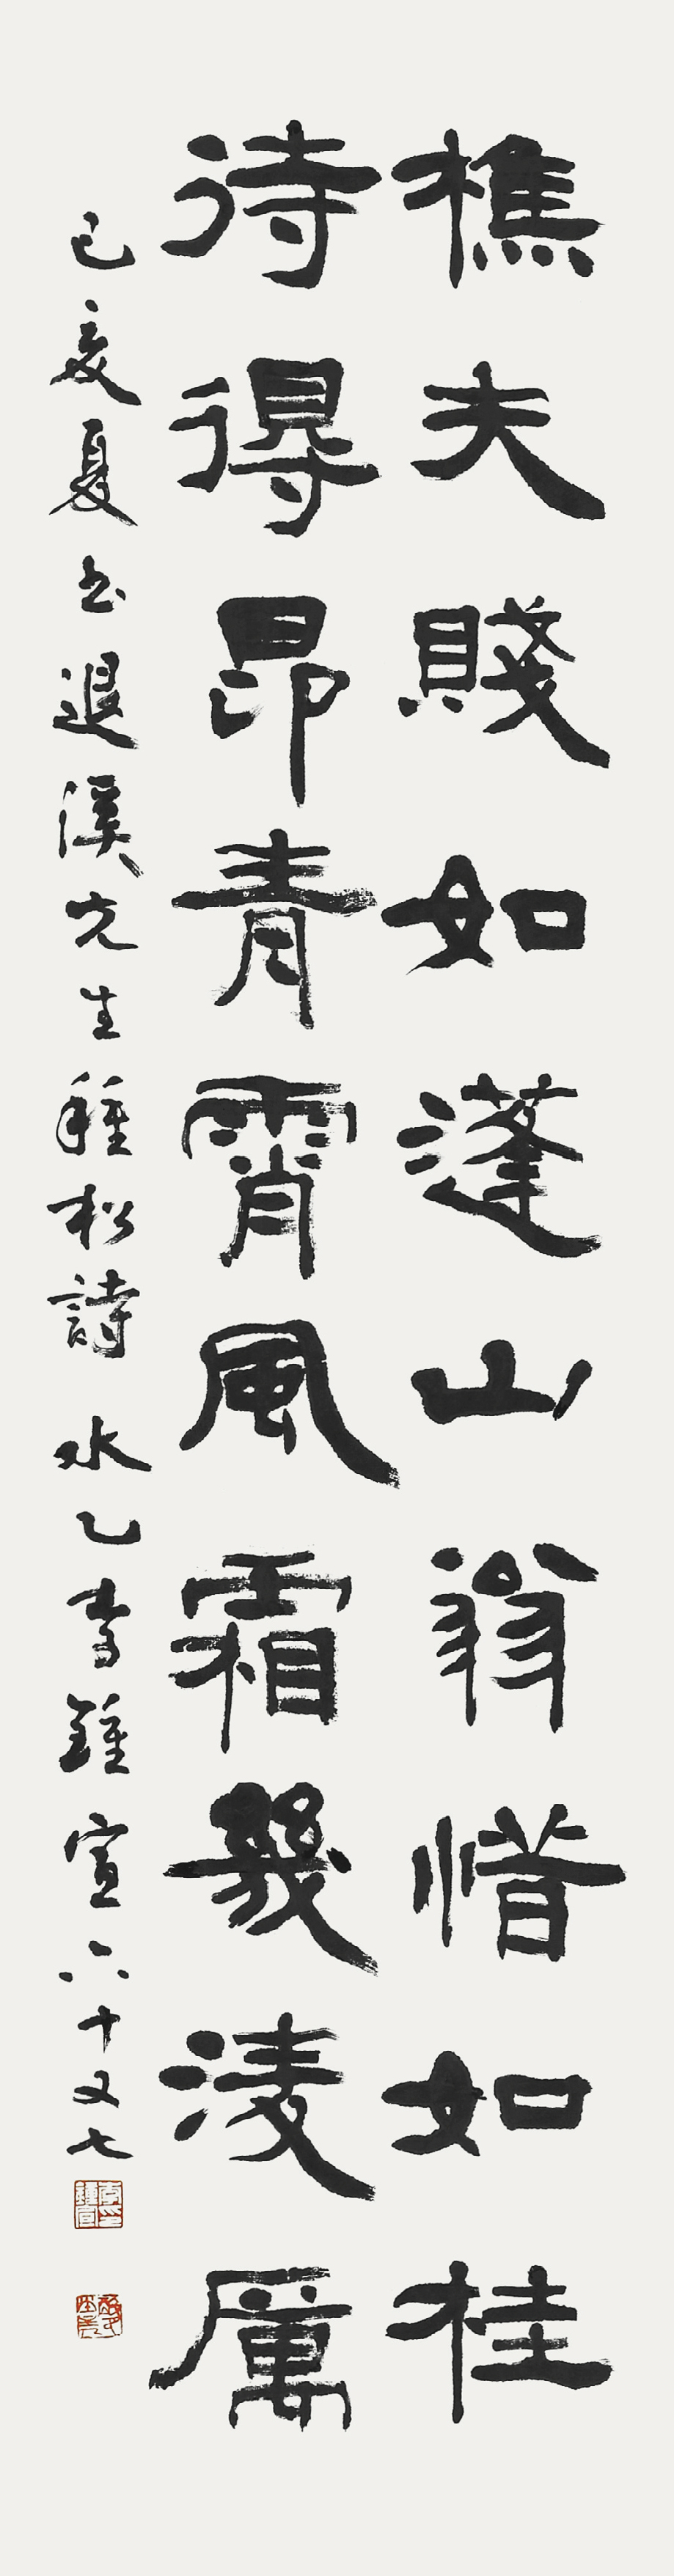 樵夫賤如蓬山翁惜如桂
待得昂青霄風霜幾凌厲
己亥夏書退溪先生種松詩 水乙李鍾宣六十又七